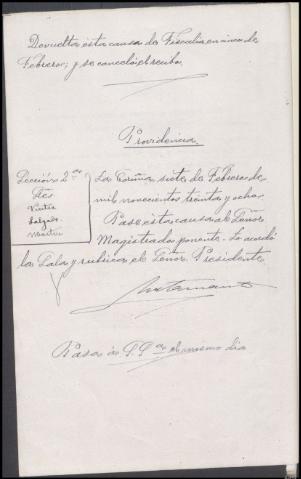 Devuelta esta causa de Fiscalia en cinco de
Febrero; y se canceló el recibo.
Providencia
Sección 2ª
Stes
Salgado
Martin
La Coruña siete de Febrero de
mil novecientos treinta y ocho.
Pase esta causa al Señor
Magistrado ponente. Lo acordó
la Sala y rubrica el Señor Presidente
Pasa á el mismo dia